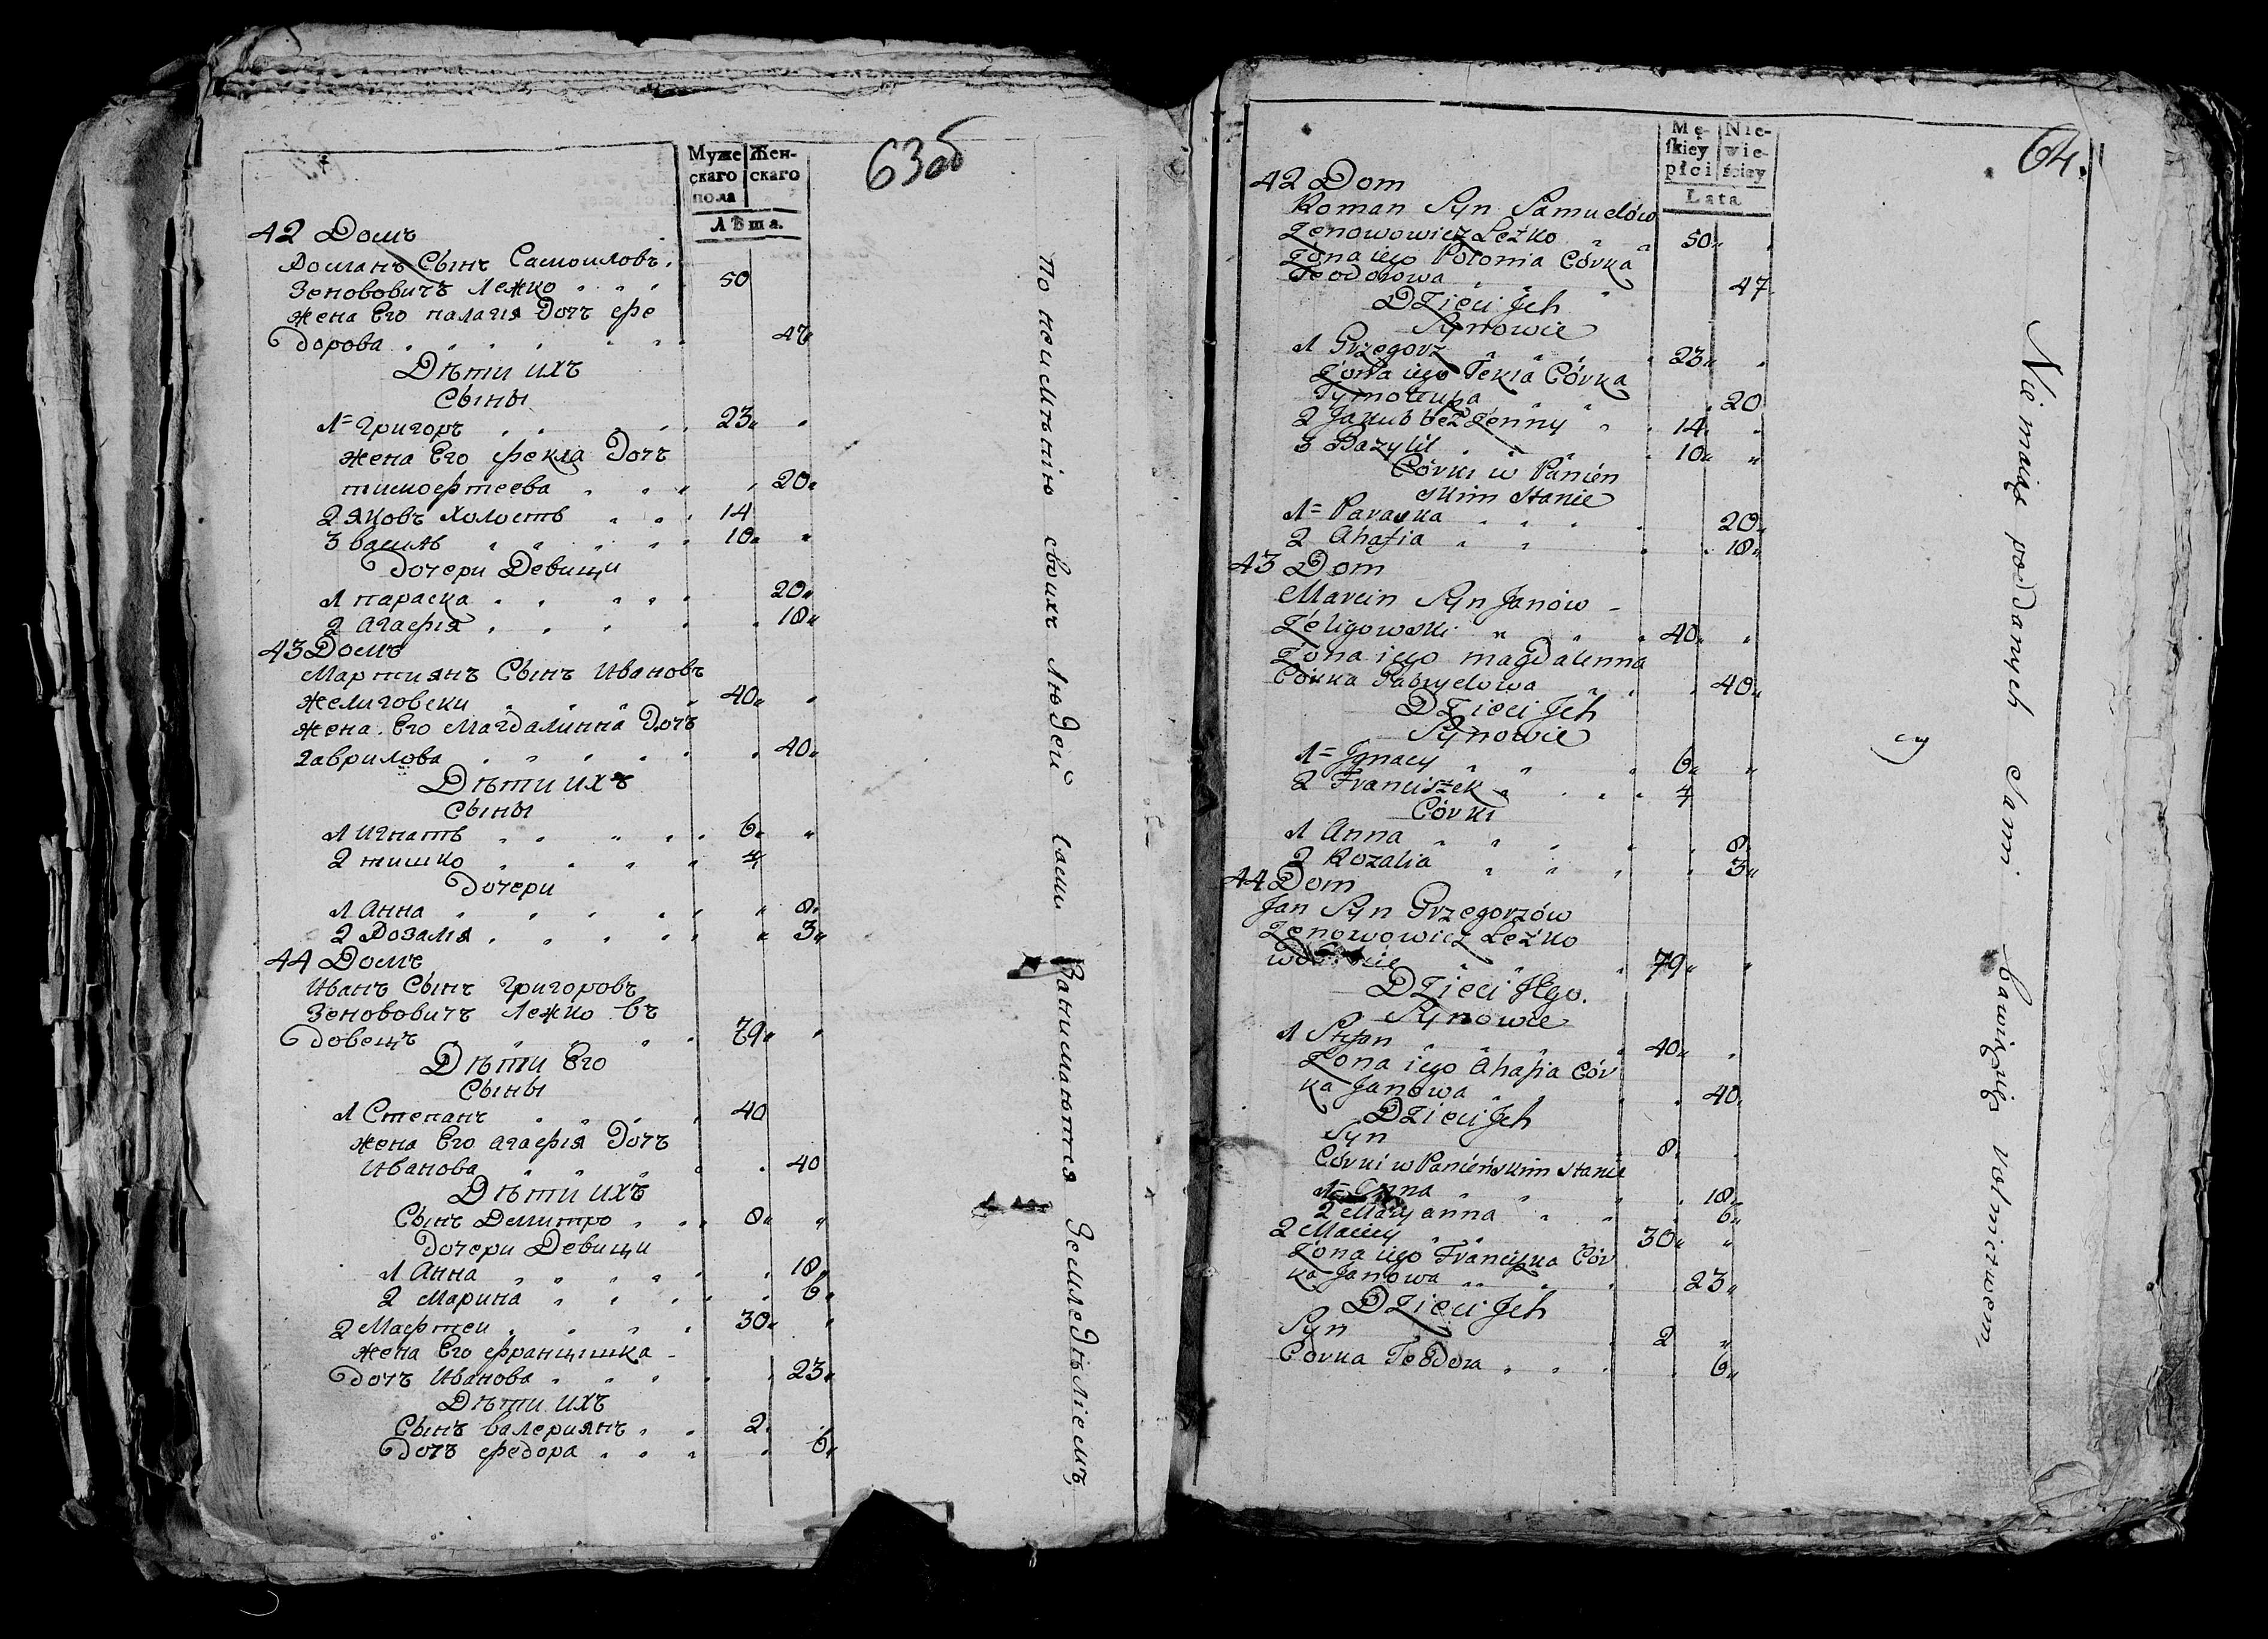 63об
Муже Жен-
скаго скаго
пола
Лѣта.
42 Домъ
Романъ Сынъ Самоиловъ
Зенововичъ Лежко 50
жена Его палагія Дочь фе
дорова 47
Дѣти ихъ
Сыны
1 Григоръ 23
жена Его фекла Дочь
тимофтеева 20
2 яковъ холостъ 14
3 василь 10
Дочери Девицы
1 параска 20
2 агафія 18
43 Домъ
Мартиянъ Сынъ Ивановъ
желиговски 40
жена Его Магдалинна Дочь
гаврилова 40
Дѣти ихъ
Сыны
1 игнатъ 6
2 тишко 4
Дочери
1 Анна 8
2 Розалія 3
44 Домъ
Иванъ Сынъ григоровъ
Зенововичъ Лежко въ
довецъ 79
Дѣти Его
Сыны
1 Степанъ 40
жена Его агафія Дочь
Иванова 40
Дѣти ихъ
Сынъ Демитро 8
Дочери Девицы
1 Анна 18
2 Марина 6
2 Мафтеи 30
жена Его францишка
Дочь Иванова 23
Дѣти ихъ
Сынъ валериянъ 2
Дочь федора 6
По неимѣнію своихъ людей Сами Занимаются Земледѣліемъ
64.
Mę- Nie-
ſkiey wie-
płci ściey
Lata
42 Dom
Roman Syn Samuelów
Zenowowicz Leżko 50
Żona iego Polonia Córka
Teodorowa 47
Dzieci Jch
Synowie
1 Grzegorz 23
Żona iego Tekla Córka
Tymoteusza 20
2 Jakub beż Żenny 14
3 Bazylii 10
Córki w Panień
skim stanie
1 Paraska 20
2 Ahafia 18
43 Dom
Marcin Syn Janów
Żeligowski 40
Żona iego magdalenna
Córka Gabryelowa 40
Dzieci Jch
Synowie
1 Jgnacy 6
2 Franciszek 4
Córki
1 Anna 8
2 Rozalia 3
44 Dom
Jan Syn Grzegorzów
Zenowowicz Leżko
79
Dzieci Jego.
Synowie
1 Stefan 40
Żona iego Ahafia Cór
ka Janowa 40
Dzieci Jch
Syn 8
Córki w Panieńskim stanie
1 Anna 18
2 Maryanna 6
2 Maciey 30
Żona iego Franciszka Cór
ka Janowa 23
Dzieci Jch
Syn 2
Córka Teodora 6
Nie maiąc poddanych Sami bawią się Rolnictwem